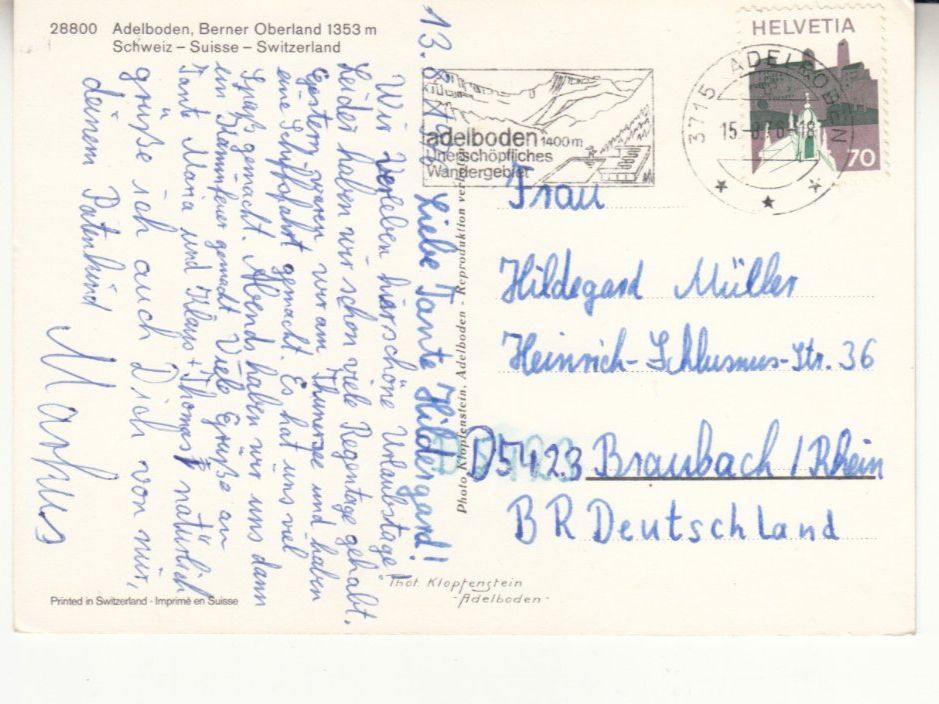 28800 Adelboden, Berner Oberland 1353 m
Schweiz – Suisse – Switzerland
HELVETIA
70
3715 ADELBODEN
15.-8.78-18
adelboden 1400 m
Unerschöpfliches
Wandergebiet
13.8.78
Liebe Tante Hildergard!
Wir verleben hier schöne Urlaubstage!
Leider haben wir schon viele Regentage gehabt.
Gestern waren wir am Thunersee und haben
eine Schiffahrt gemacht. Es hat uns viel
Spaß gemacht. Abends haben wir uns dann
ein Kaminfeuer gemacht. Viele Grüße an
Tante Maria und Klaus + Thomas natürlich
grüße ich auch Dich von mir,
deinem Patenkind
Markus
Photo Klopfenstein, Adelboden - Reproduktion verboten
Frau
Hildegard Müller
Heinrich-Schlusnus-Str. 36
D5423 Braubach / Rhein
BR Deutschland
Phot. Klopfenstein
-Adelboden-
Printed in Switzerland - Imprimé en Suisse